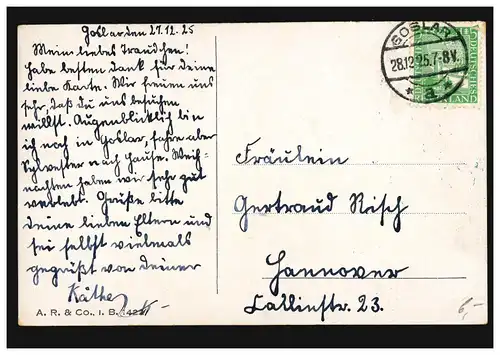 Goslar, den 27.12.25
Mein liebes Traudchen!
Habe besten Dank für deine
liebe Karte. Wir freuen uns
sehr, daß du uns besuchen
willst. Augenblicklich bin
ich noch in Goslar, fahre aber
Sylvester nach Hause. Weih-
nachten haben wir sehr gut
verlebt. Grüße bitte
deine lieben Eltern und
sei selbst vielmals
gegrüßt von deiner
Käthe
A. R. & Co., i. B.
GOSLAR
28.12.25.7-8V.
* a *
DEUTSCHES
Fräulein
Gertraud Risch
Hannover
Callinstr. 23.
6,-